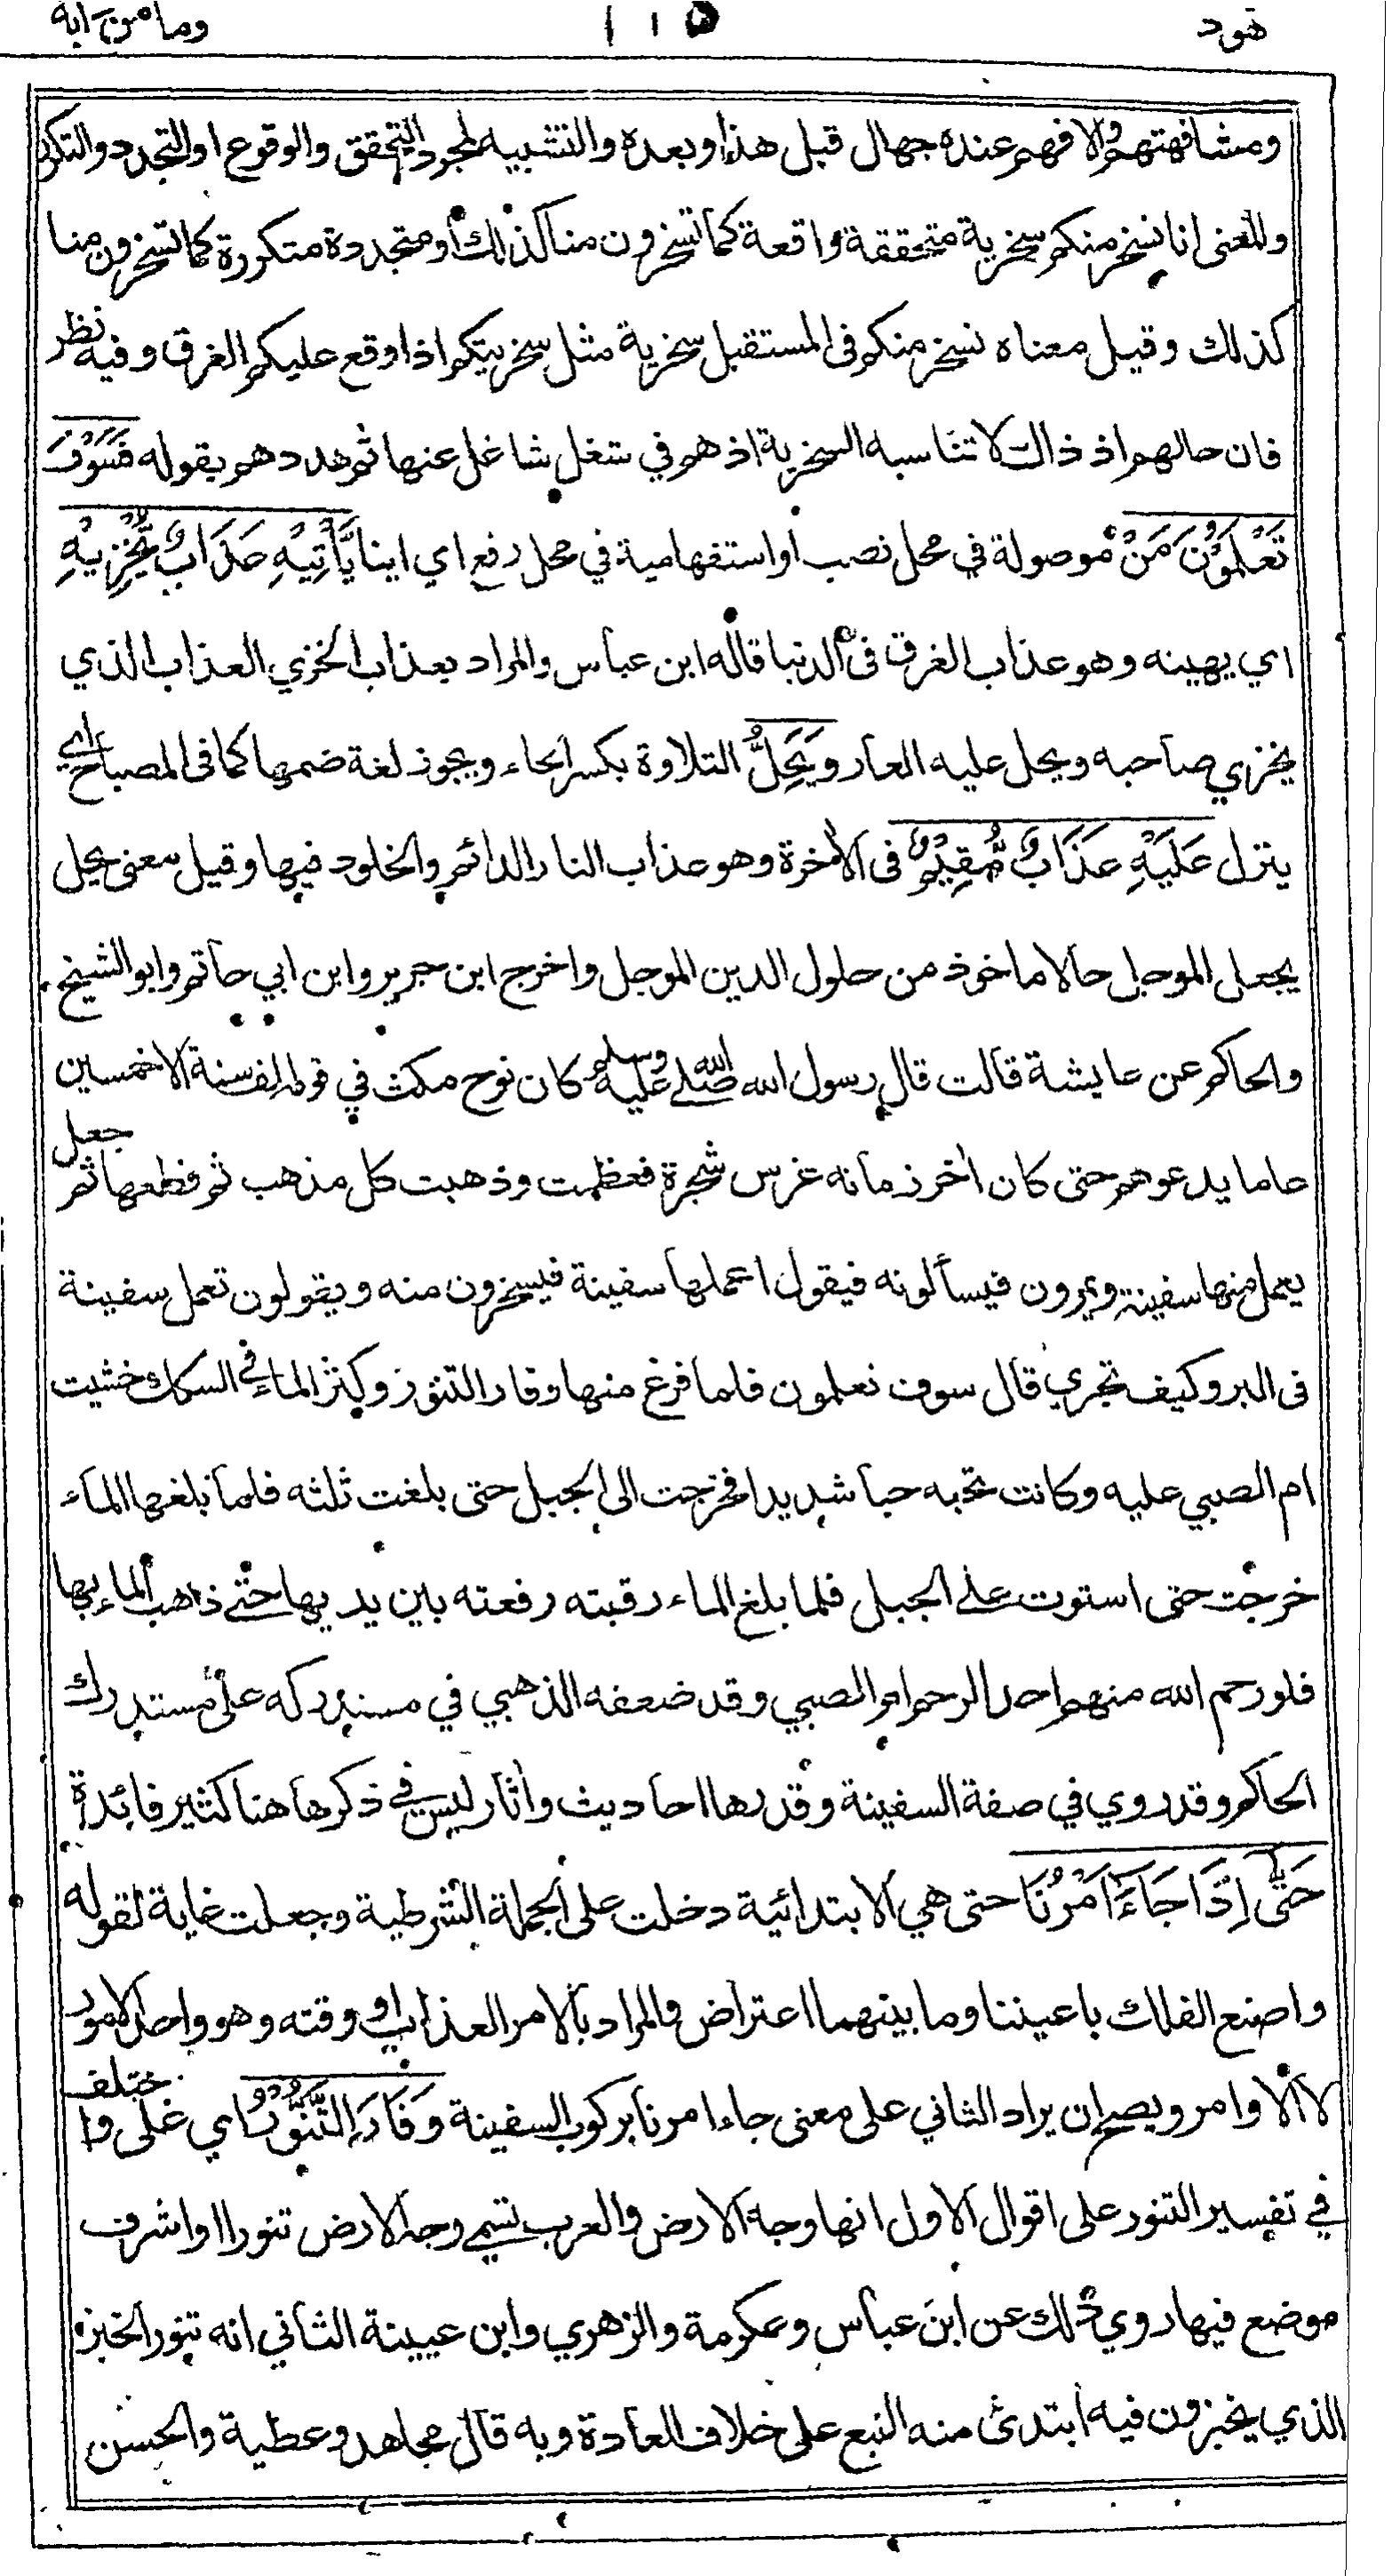 هود ١١٥ وما من دابة
ومشافهتهم والا فهم عنده جهال قبل هذا وبعده والتشبيه لمجرد التحقق والوقوع او التجدد والتكرر
والمعنى انا نسخر منكم سخرية متحققة واقعة كما تسخرون منا كذلك أو متجددة متكررة كما تسخرون منا
كذلك وقيل معناه نسخر منكم في المستقبل سخرية مثل سخريتكم اذا وقع عليكم الغرق وفيه نظر
فان حالهم اذ ذاك لا تناسبه السخرية اذ هم في شغل شاغل عنها ثم هددهم بقوله فَسَوْفَ
تَعْلَمُوْنَ مَنْ موصولة في محل نصب أو استفهامية في محل رفع اي اينا يَّأْتِيْهِ عَذَابٌ يُّخْزِيْهِ
اي يهينه وهو عذاب الغرق في الدنيا قاله ابن عباس والمراد بعذاب الخزي العذاب الذي
يخزي صاحبه ويحل عليه العار وَيَحِلُّ التلاوة بكسر الحاء ويجوز لغة ضمها كما في المصباح اي
ينزل عَلَيْهِ عَذَابٌ مُّقِيْمٌ في الآخرة وهو عذاب النار الدائم والخلود فيها وقيل معنى يحل
يجعل الموجل حالا ماخوذ من حلول الدين الموجل واخرج ابن جرير وابن ابي حاتم وابو الشيخ
والحاكم عن عايشة قالت قال رسول الله صلى الله عليه وسلم كان نوح مكث في قومه الف سنة الا خمسين
عاما يدعوهم حتى كان آخر زمانه غرس شجرة فعظمت وذهبت كل مذهب ثم قطعها ثم جعل
يعمل منها سفينة ويمرون فيسألونه فيقول اعملها سفينة فيسخرون منه ويقولون تعمل سفينة
في البر وكيف تجري قال سوف تعلمون فلما فرغ منها وفار التنور وكثر الماء في السكك خشيت
ام الصبي عليه وكانت تحبه حبا شديدا فخرجت الى الجبل حتى بلغت ثلثه فلما بلغها الماء
خرجت حتى استوت على الجبل فلما بلغ الماء رقبته رفعته بين يديها حتى ذهب الماء بها
فلو رحم الله منهم احدا لرحم ام الصبي وقد ضعفه الذهبي في مستدركه على مستدرك
الحاكم وقد روي في صفة السفينة وقدرها احاديث وآثار ليس في ذكرها هنا كثير فائدة
حَتّٰى اِذَا جَاءَ اَمْرُنَا حتى هي الابتدائية دخلت على الجملة الشرطية وجعلت غاية لقوله
واصنع الفلك باعيننا وما بينهما اعتراض والمراد بالامر العذاب او وقته وهو واحد الامور
لا الاوامر ويصح ان يراد الثاني على معنى جاء امرنا بركوب السفينة وَفَارَ التَّنُّوْرُ اي غلى واختلف
في تفسير التنور على اقوال الاول انها وجه الارض والعرب تسمي وجه الارض تنورا او اشرف
موضع فيها روي ذلك عن ابن عباس وعكرمة والزهري وابن عيينة الثاني انه تنور الخبز
الذي يخبزون فيه ابتدئ منه النبع على خلاف العادة وبه قال مجاهد وعطية والحسن